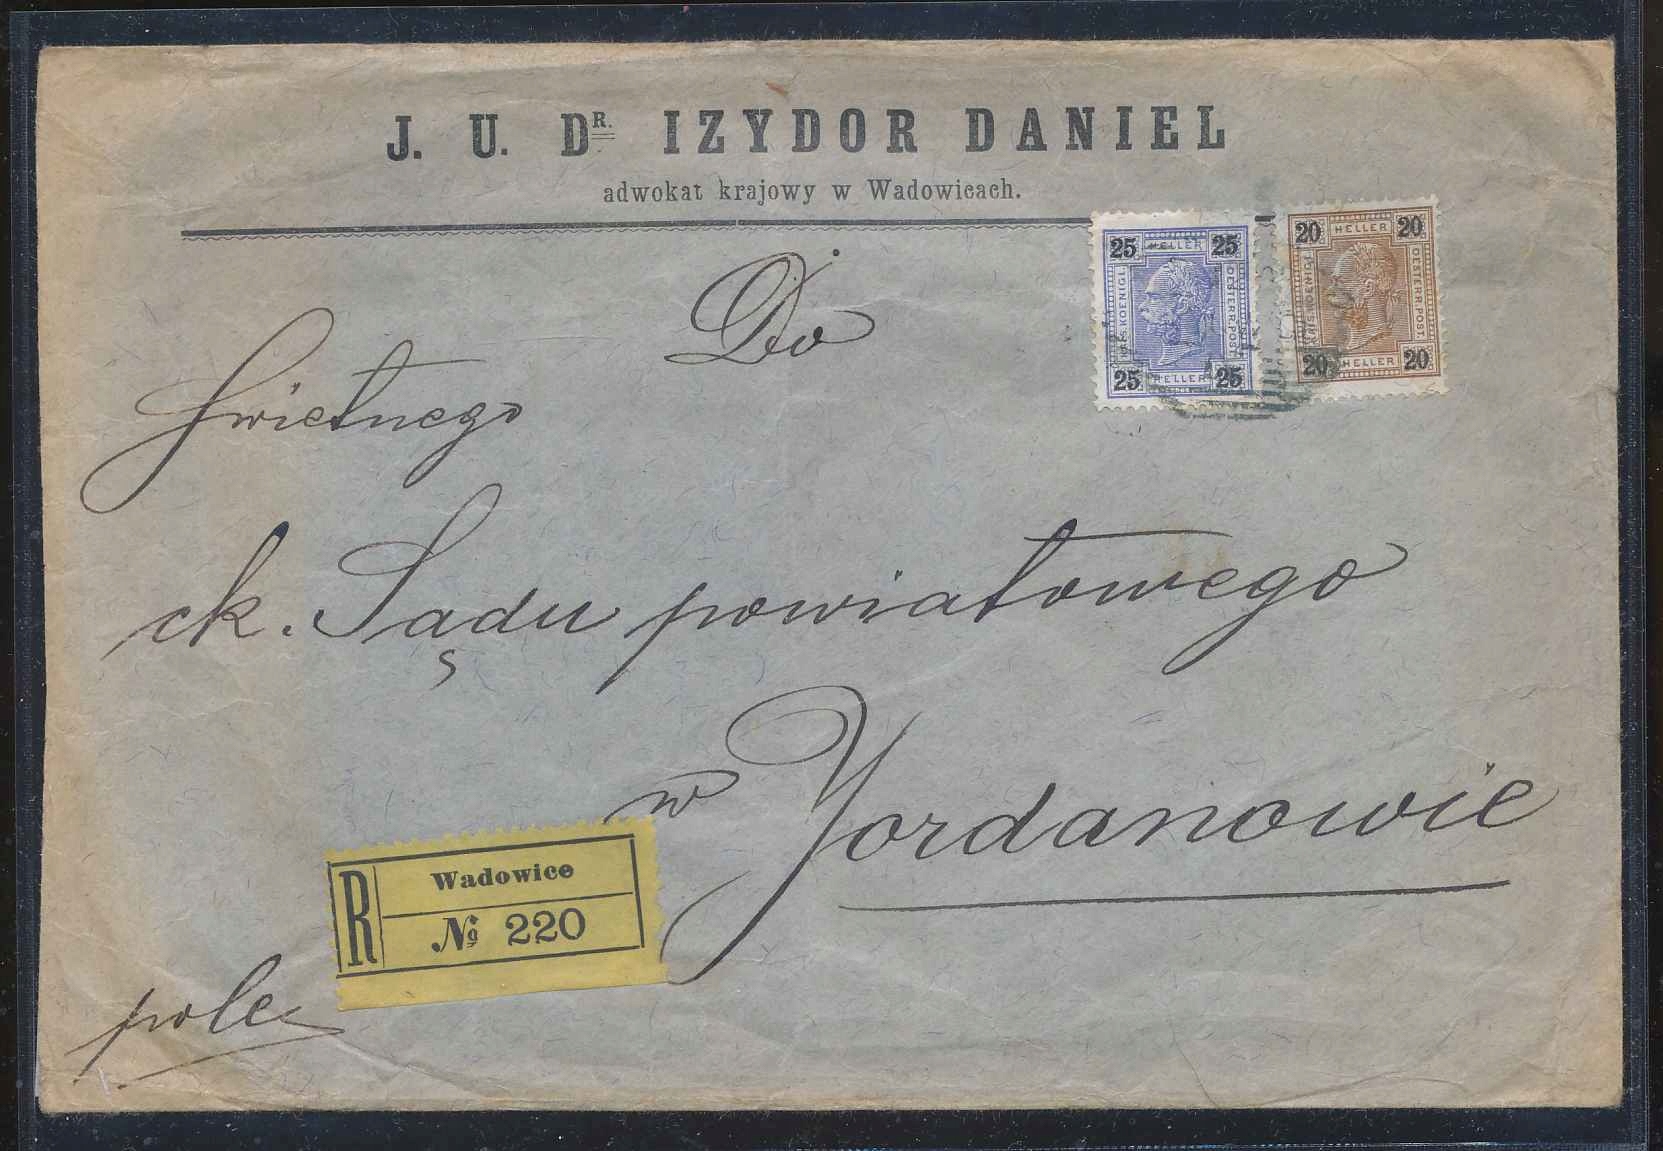 J. U. DR. IZYDOR DANIEL
adwokat krajowy w Wadowicach.
25 HELLER 25
KAIS. KOENIGL. OESTERR. POST.
25 HELLER 25
20 HELLER 20
KAIS. KOENIGL. OESTERR. POST.
20 HELLER 20
Do
Swietnego
ck. Sądu powiatowego
w Jordanowie
R
Wadowice
№ 220
polec